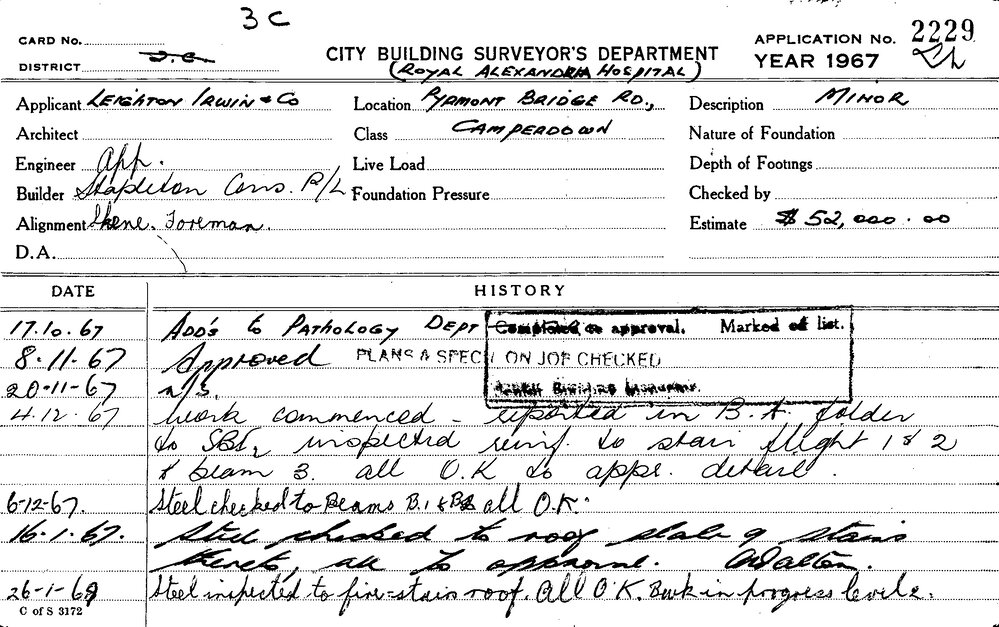 3C
CARD No.
DISTRICT
CITY BUILDING SURVEYOR'S DEPARTMENT
(ROYAL ALEXANDRA HOSPITAL)
APPLICATION No. 2229
YEAR 1967
Applicant LEIGHTON IRWIN & CO
Location PYRMONT BRIDGE RD.,
Description MINOR
Architect
Class CAMPERDOWN
Nature of Foundation
Engineer App.
Live Load
Depth of Footings
Builder Stapleton Cons. P/L
Foundation Pressure
Checked by
Alignment Skene. Foreman.
Estimate $ 52,000.00
D.A.
DATE HISTORY
17.10.67 ADD'S to PATHOLOGY DEPT
Completed on approval. Marked off list.
8-11-67 Approved PLANS & SPEC ON JOB CHECKED
20-11-67 n/s.
4.12.67 work commenced - reported in B.A. folder
to SBI, inspected reinf. to stair flight 1 & 2
& beam 3. all O.K to appr. detail.
6-12-67. Steel checked to Beams B.1 & B2 all O.K.
16.1.67. Steel checked to roof slab & stairs
thereto, all to approval.
26-1-68 Steel inspected to fire-stair roof. All O.K. Bwk in progress level 2.
C of S 3172